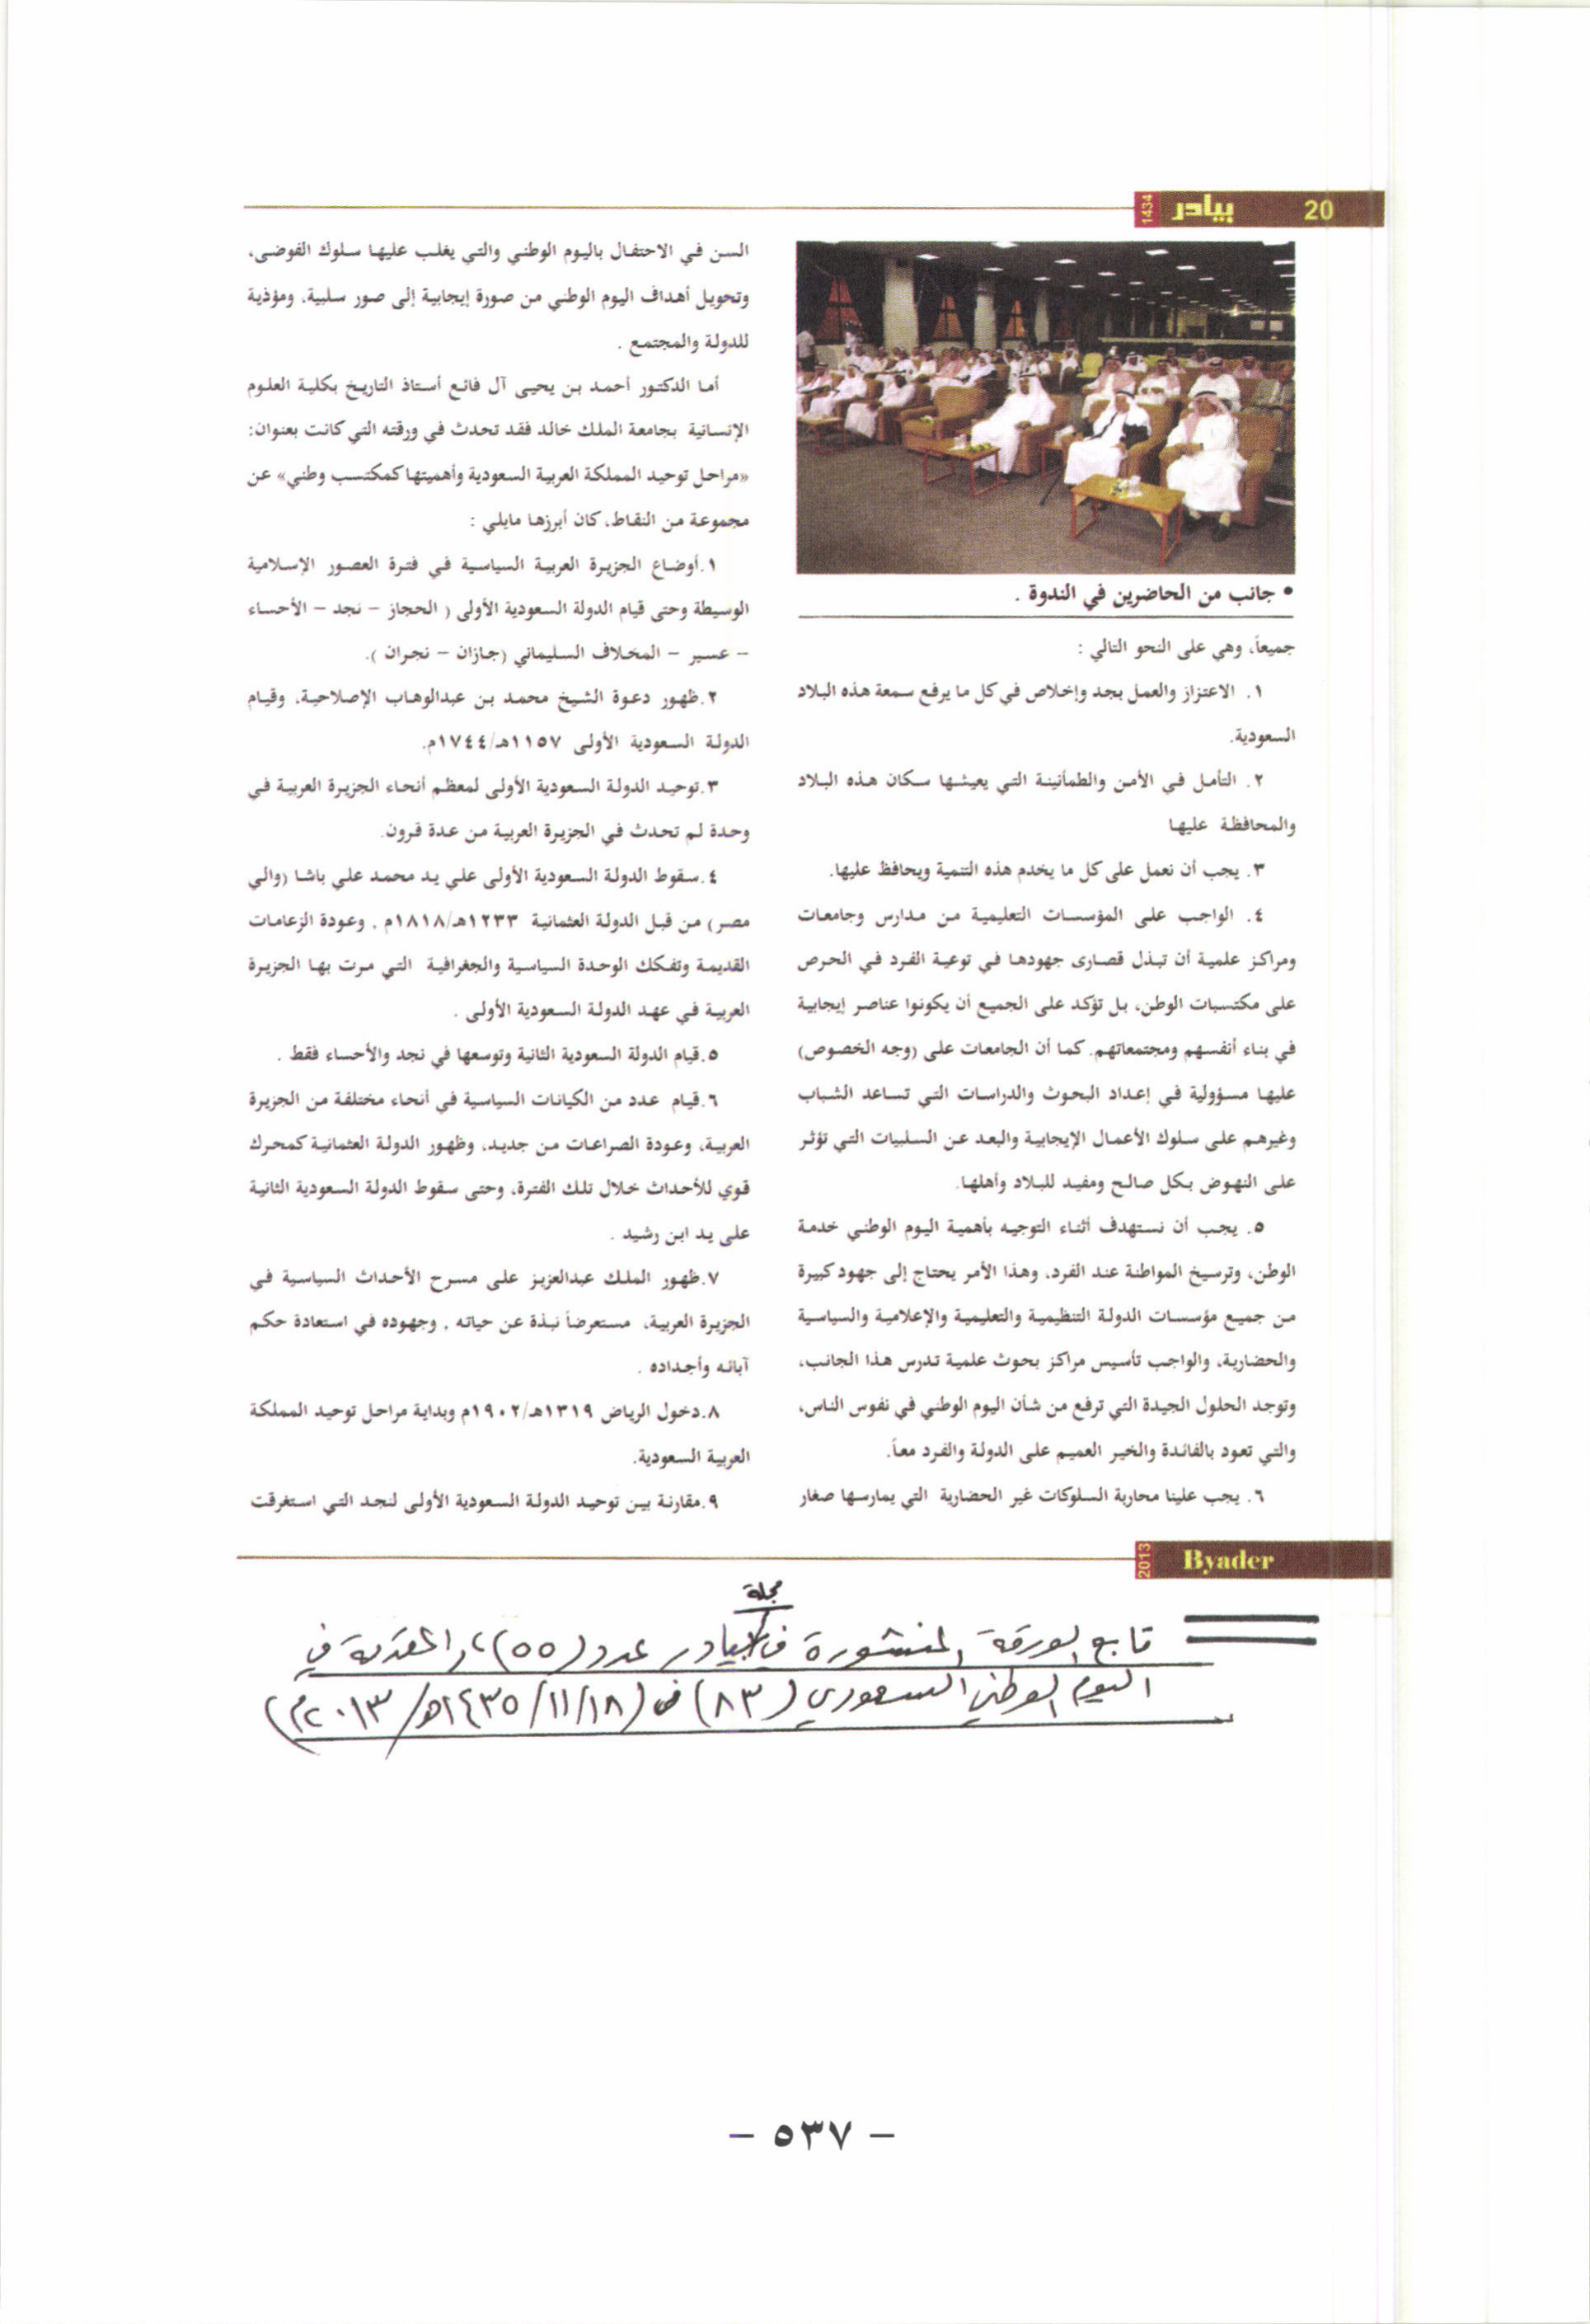 20 بيادر 1434
• جانب من الحاضرين في الندوة .
جميعاً، وهي على النحو التالي :
١. الاعتزاز والعمل بجد وإخلاص في كل ما يرفع سمعة هذه البلاد
السعودية.
٢. التأمل في الأمن والطمأنينة التي يعيشها سكان هذه البلاد
والمحافظة عليها
٣. يجب أن نعمل على كل ما يخدم هذه التنمية ويحافظ عليها.
٤. الواجب على المؤسسات التعليمية من مدارس وجامعات
ومراكز علمية أن تبذل قصارى جهودها في توعية الفرد في الحرص
على مكتسبات الوطن، بل تؤكد على الجميع أن يكونوا عناصر إيجابية
في بناء أنفسهم ومجتمعاتهم. كما أن الجامعات على (وجه الخصوص)
عليها مسؤولية في إعداد البحوث والدراسات التي تساعد الشباب
وغيرهم على سلوك الأعمال الإيجابية والبعد عن السلبيات التي تؤثر
على النهوض بكل صالح ومفيد للبلاد وأهلها.
٥. يجب أن نستهدف أثناء التوجيه بأهمية اليوم الوطني خدمة
الوطن، وترسيخ المواطنة عند الفرد، وهذا الأمر يحتاج إلى جهود كبيرة
من جميع مؤسسات الدولة التنظيمية والتعليمية والإعلامية والسياسية
والحضارية، والواجب تأسيس مراكز بحوث علمية تدرس هذا الجانب،
وتوجد الحلول الجيدة التي ترفع من شأن اليوم الوطني في نفوس الناس،
والتي تعود بالفائدة والخير العميم على الدولة والفرد معاً.
٦. يجب علينا محاربة السلوكات غير الحضارية التي يمارسها صغار
السن في الاحتفال باليوم الوطني والتي يغلب عليها سلوك الفوضى،
وتحويل أهداف اليوم الوطني من صورة إيجابية إلى صور سلبية، ومؤذية
للدولة والمجتمع .
أما الدكتور أحمد بن يحيى آل فائع أستاذ التاريخ بكلية العلوم
الإنسانية بجامعة الملك خالد فقد تحدث في ورقته التي كانت بعنوان:
«مراحل توحيد المملكة العربية السعودية وأهميتها كمكتسب وطني» عن
مجموعة من النقاط، كان أبرزها مايلي :
١.أوضاع الجزيرة العربية السياسية في فترة العصور الإسلامية
الوسيطة وحتى قيام الدولة السعودية الأولى ( الحجاز – نجد – الأحساء
– عسير – المخلاف السليماني (جازان – نجران ).
٢.ظهور دعوة الشيخ محمد بن عبدالوهاب الإصلاحية، وقيام
الدولة السعودية الأولى ١١٥٧هـ/١٧٤٤م.
٣.توحيد الدولة السعودية الأولى لمعظم أنحاء الجزيرة العربية في
وحدة لم تحدث في الجزيرة العربية من عدة قرون.
٤.سقوط الدولة السعودية الأولى علي يد محمد علي باشا (والي
مصر) من قبل الدولة العثمانية ١٢٣٣هـ/١٨١٨م , وعودة الزعامات
القديمة وتفكك الوحدة السياسية والجغرافية التي مرت بها الجزيرة
العربية في عهد الدولة السعودية الأولى .
٥.قيام الدولة السعودية الثانية وتوسعها في نجد والأحساء فقط .
٦.قيام عدد من الكيانات السياسية في أنحاء مختلفة من الجزيرة
العربية، وعودة الصراعات من جديد، وظهور الدولة العثمانية كمحرك
قوي للأحداث خلال تلك الفترة، وحتى سقوط الدولة السعودية الثانية
على يد ابن رشيد .
٧.ظهور الملك عبدالعزيز على مسرح الأحداث السياسية في
الجزيرة العربية، مستعرضاً نبذة عن حياته , وجهوده في استعادة حكم
آبائه وأجداده .
٨.دخول الرياض ١٣١٩هـ/١٩٠٢م وبداية مراحل توحيد المملكة
العربية السعودية.
٩.مقارنة بين توحيد الدولة السعودية الأولى لنجد التي استغرقت
Byader 2013
مجلة
تابع الورقة المنشورة في بيادر عدد (٥٥)، المقدمة في
اليوم الوطني السعودي (٨٣) في (١٤٣٥/١١/١٨هـ/٢٠١٣م)
– ٥٣٧ –